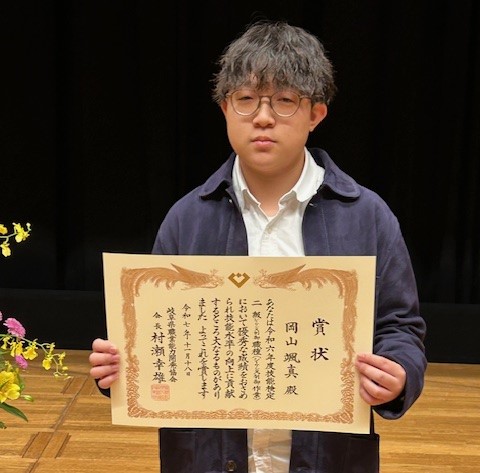 賞状
岡山颯真 殿
あなたは令和六年度技能検定
二級シーケンス制御職種(シーケンス制御作業)
において優秀な成績をおさめ
られ技能水準の向上に貢献
するところ大なるものがあり
ました よってこれを賞します
令和七年十一月十八日
岐阜県職業能力開発協会
会長 村瀬幸雄